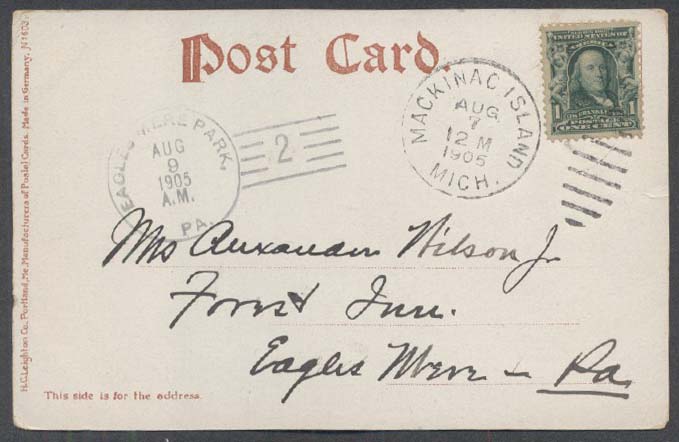 Post Card
UNITED STATES OF
AMERICA
1 1
POSTAGE
ONE CENT
MACKINAC ISLAND
AUG.
7
12 M
1905
MICH.
EAGLES MERE PARK,
AUG
9
1905
A.M.
PA.
2
Mrs Alexander Wilson Jr
Forest Inn.
Eagles Mere – Pa.
This side is for the address.
H.C. Leighton Co. Portland, Me. Manufacturers of Postal Cards. Made in Germany. N 1603